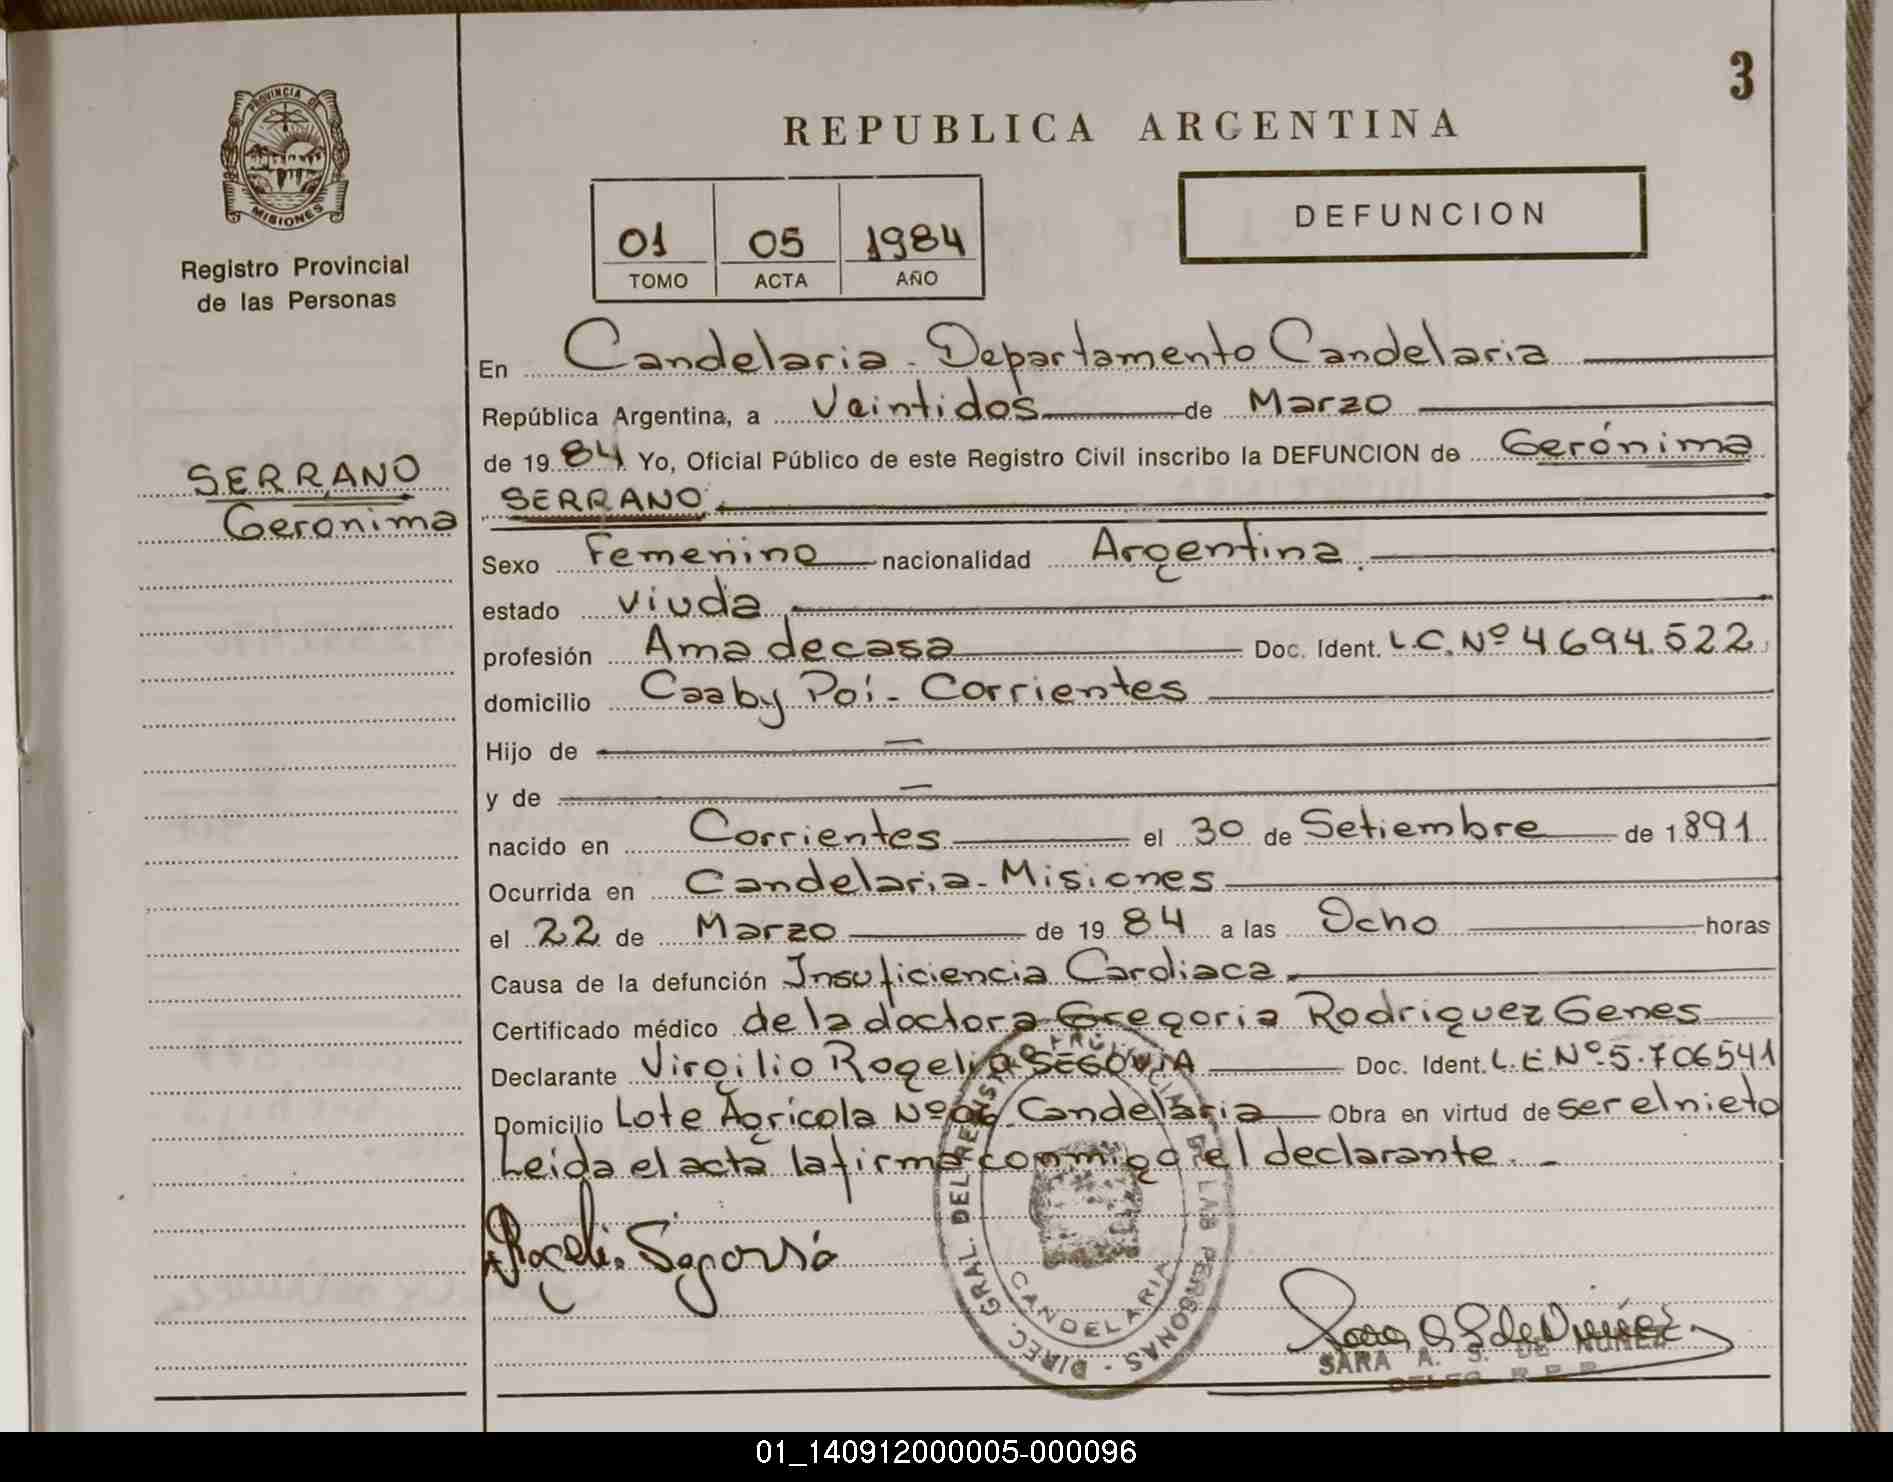 3
PROVINCIA DE
MISIONES
Registro Provincial
de las Personas
REPUBLICA ARGENTINA
01 05 1984
TOMO ACTA AÑO
DEFUNCION
SERRANO
Geronima
En Candelaria - Departamento Candelaria
República Argentina, a Veintidos de Marzo
de 1984 Yo, Oficial Público de este Registro Civil inscribo la DEFUNCION de Gerónima
SERRANO
Sexo Femenino nacionalidad Argentina.
estado viuda
profesión Ama de casa Doc. Ident. L.C. Nº 4694.522
domicilio Caaby Poí - Corrientes
Hijo de —
y de —
nacido en Corrientes el 30 de Setiembre de 1891
Ocurrida en Candelaria - Misiones
el 22 de Marzo de 1984 a las Ocho horas
Causa de la defunción Insuficiencia Cardiaca
Certificado médico de la doctora Gregoria Rodriguez Genes
Declarante Virgilio Rogelio SEGOVIA Doc. Ident. L.E. Nº 5.706541
Domicilio Lote Agrícola Nº 06 Candelaria Obra en virtud de ser el nieto
Leida el acta la firma conmigo el declarante. -
DIREC. GRAL. DEL REGISTRO PROVINCIAL DE LAS PERSONAS -
CANDELARIA
SARA A. S. DE NUÑEZ
DELEG. R.P.P.
01_140912000005-000096